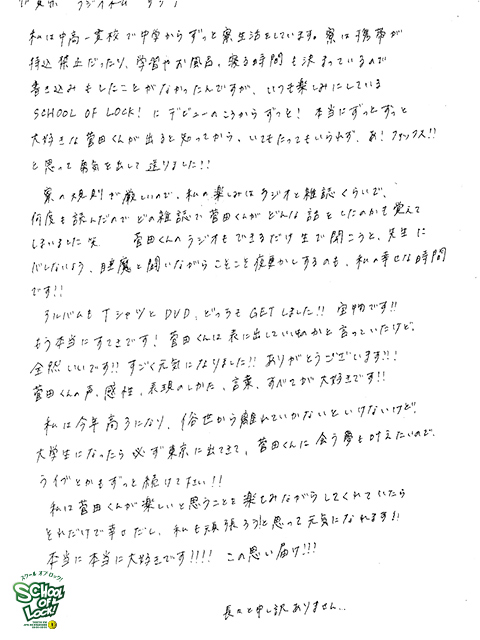 私は中高一貫校で中学からずっと寮生活をしています。寮は携帯が
持込禁止だったり、学習やお風呂、寝る時間も決まっているので
書き込みもしたことがなかったんですが、いつも楽しみにしている
SCHOOL OF LOCK! に デビューのころからずっと! 本当にずっとずっと
大好きな菅田くんが出ると知ってから、いてもたってもいられず、あ! ファックス!!
と思って勇気を出して送りました!!
寮の規則が厳しいので、私の楽しみはラジオと雑誌くらいで、
何度も読んだので どの雑誌で菅田くんが どんな話をしたのかも覚えて
しまいました笑 菅田くんのラジオもできるだけ生で聞こうと、先生に
バレないよう、睡魔と闘いながらこそこそ夜更かしするのも、私の幸せな時間
です!!
アルバムもTシャツとDVD、どっちもGETしました!! 宝物です!!
もう本当にすてきです! 菅田くんは表に出していいものかと言っていたけど、
全然いいです!! すごく元気になりました!! ありがとうございます!!
菅田くんの声、感性、表現のしかた、言葉、すべてが大好きです!!
私は今年高3になり、俗世から離れていかないといけないけど、
大学生になったら必ず東京に出てきて、菅田くんに会う夢も叶えたいので、
ライブとかもずっと続けて下さい!!
私は菅田くんが楽しいと思うことを楽しみながらしてくれていたら
それだけで幸せだし、私も頑張ろうと思って元気になれます!!
本当に本当に大好きです!!!! この思い届け!!!
長々と申し訳ありません..
スクール オブ ロック!
SCHOOL OF LOCK!